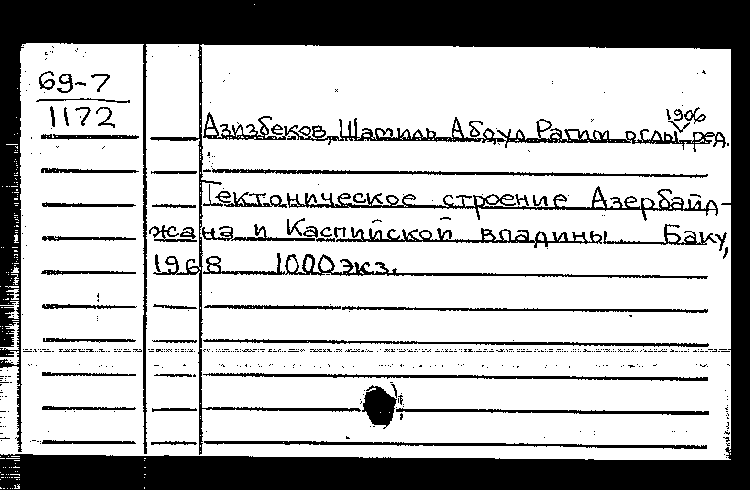 69-7
1172
1906
Азизбеков, Шамиль Абдул Рагим оглы, ред.
Тектоническое строение Азербайд-
жана и Каспийской впадины. Баку,
1968 1000 экз.